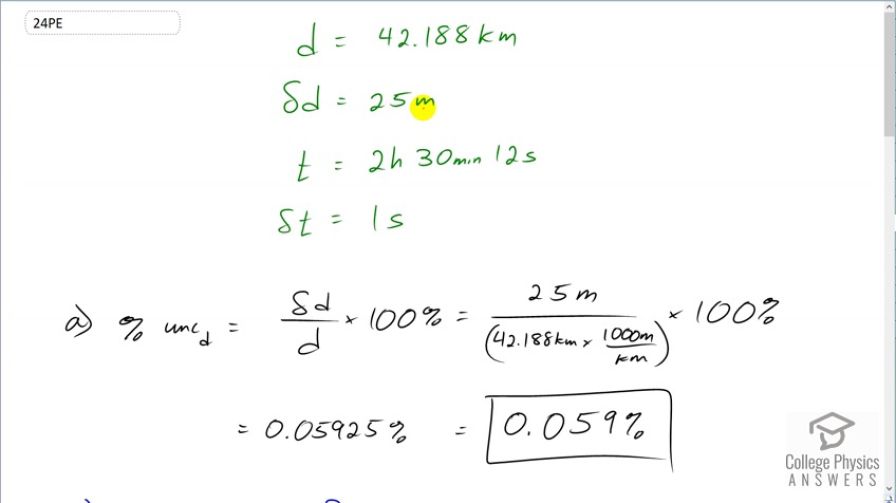 24PE
d = 42.188 km
δd = 25 m
t = 2h 30min 12s
δt = 1s
a) % unc_d = δd/d × 100% = 25 m/(42.188km × 1000m/km) × 100%
= 0.05925% = 0.059%
College Physics
ANSWERS